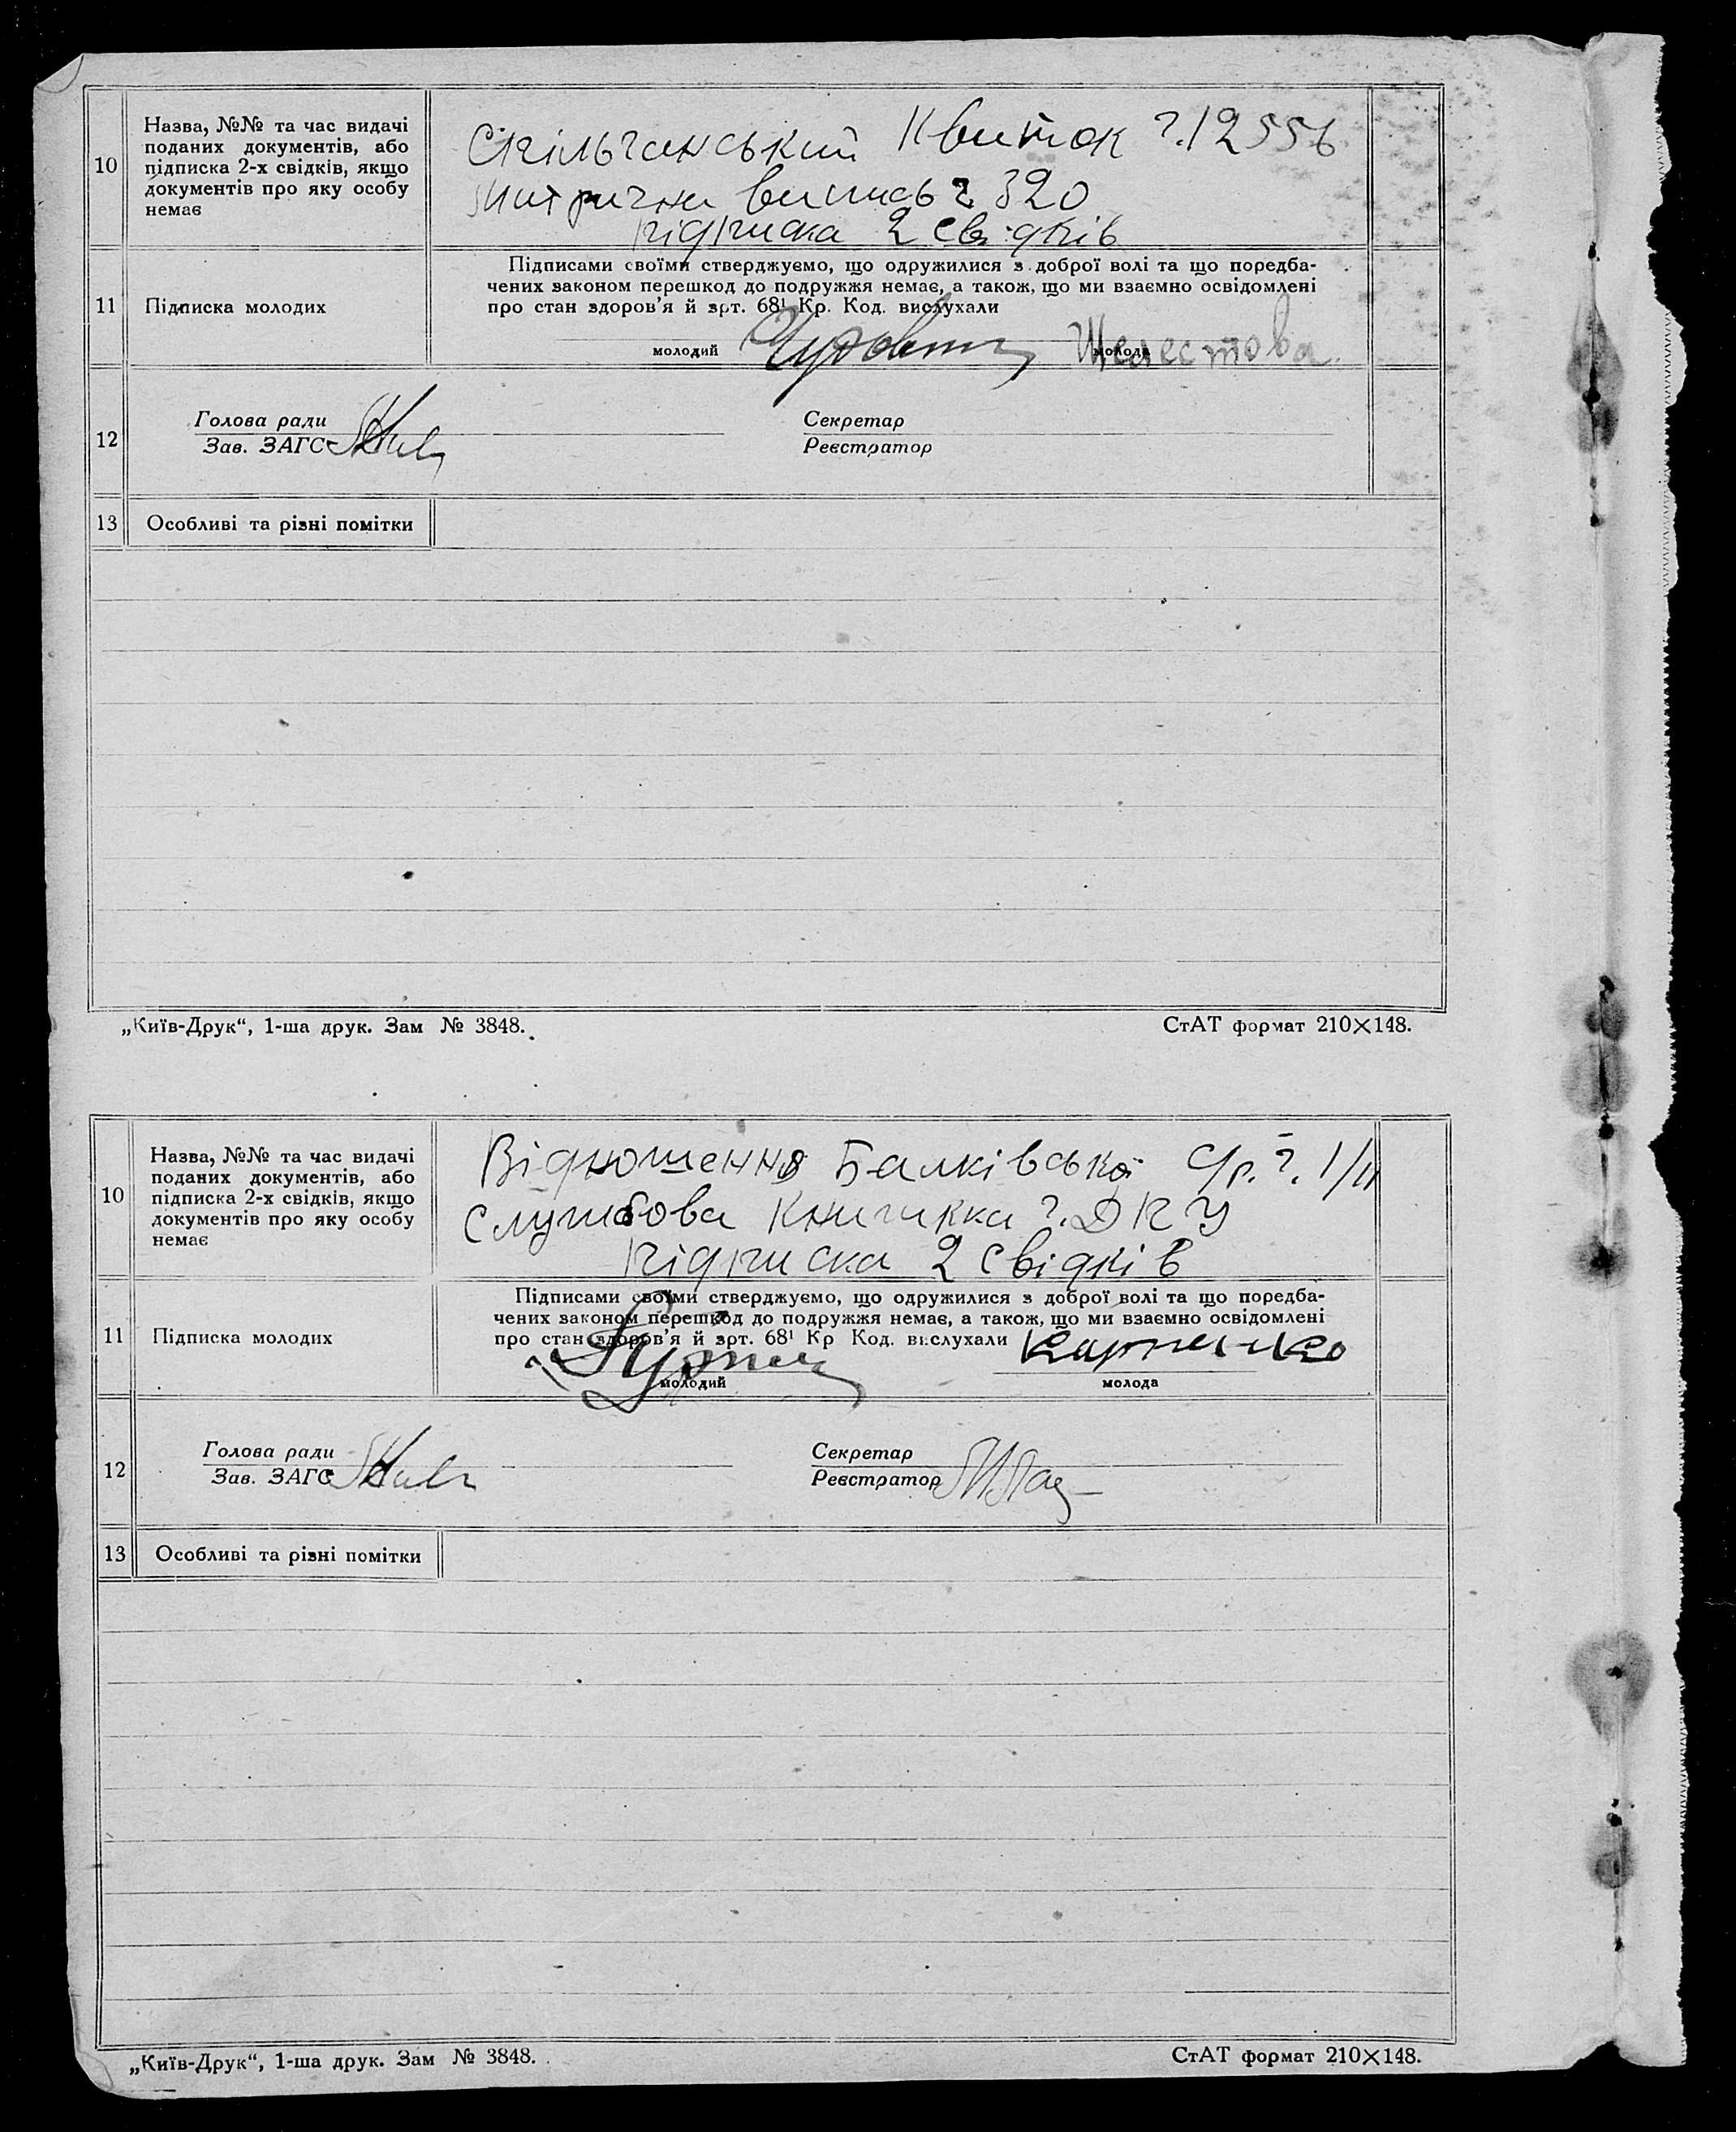 10
Назва, №№ та час видачі
поданих документів, або
підписка 2-х свідків, якщо
документів про яку особу
немає
Спільчанський Квиток ч. 12556
Митрична випись ч. 320
підписка 2 свідків
11
Підписка молодих
Підписами своїми стверджуємо, що одружилися з доброї волі та що поредба-
чених законом перешкод до подружжя немає, а також, що ми взаємно освідомлені
про стан здоров'я й зрт. 68¹ Кр. Код. вислухали
молодий
молода Шелестова
12
Голова ради
Зав. ЗАГС
Секретар
Реєстратор
13
Особливі та різні помітки
„Київ-Друк“, 1-ша друк. Зам № 3848.
СтАТ формат 210×148.
10
Назва, №№ та час видачі
поданих документів, або
підписка 2-х свідків, якщо
документів про яку особу
немає
Відношення Балківської с/р. ч. 1/11
Службова Книжка ч. ДКУ
підписка 2 свідків
11
Підписка молодих
Підписами своїми стверджуємо, що одружилися з доброї волі та що поредба-
чених законом перешкод до подружжя немає, а також, що ми взаємно освідомлені
про стан здоров'я й зрт. 68¹ Кр Код. вислухали
Карпенко
молодий
молода
12
Голова ради
Зав. ЗАГС
Секретар
Реєстратор
13
Особливі та різні помітки
„Київ-Друк“, 1-ша друк. Зам № 3848.
СтАТ формат 210×148.